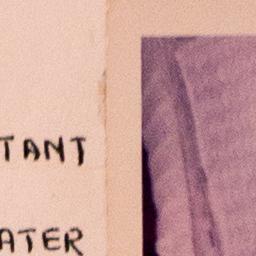 TANT
ATER